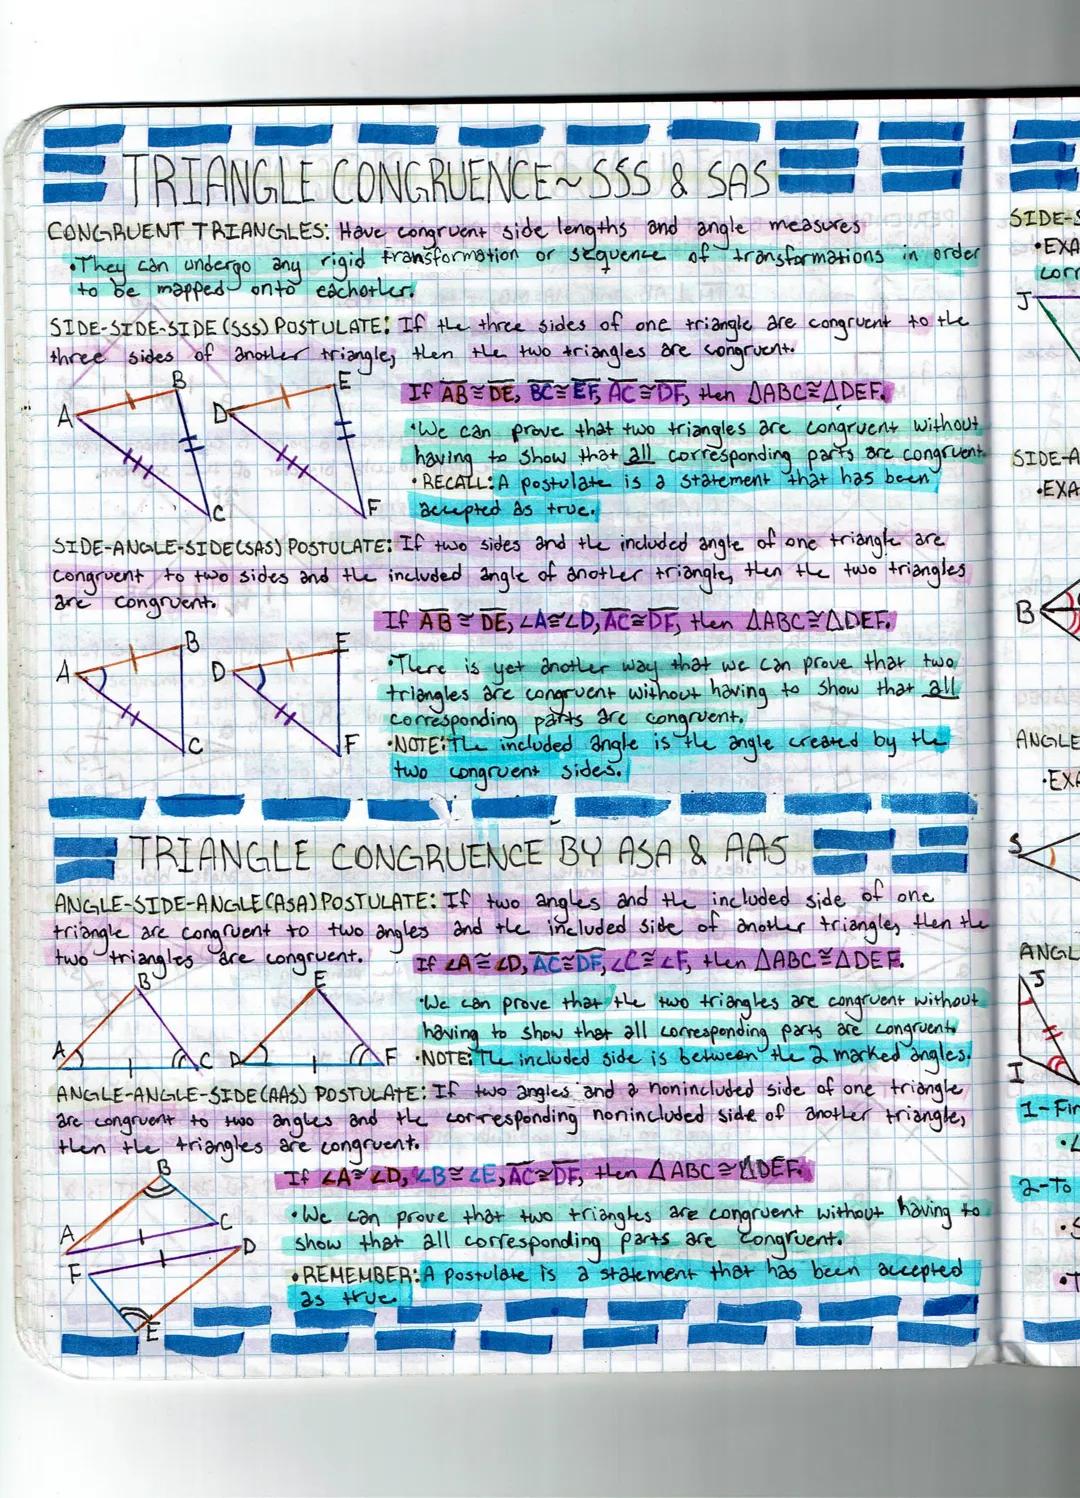 TRIANGLE CONGRUENCE~SSS & SAS
CONGRUENT TRIANGLES: Have congruent side lengths and angle measures
•They can undergo any rigid transformation or sequence of transformations in order
to be mapped onto eachother.
SIDE-SIDE-SIDE (SSS) POSTULATE: If the three sides of one triangle are congruent to the
three sides of another triangle, then the two triangles are congruent.
A B C D E F
If AB≅DE, BC≅EF, AC≅DF, then ΔABC≅ΔDEF.
•We can prove that two triangles are congruent without
having to show that all corresponding parts are congruent.
•RECALL: A postulate is a statement that has been
accepted as true.
SIDE-ANGLE-SIDE(SAS) POSTULATE: If two sides and the included angle of one triangle are
congruent to two sides and the included angle of another triangle, then the two triangles
are congruent.
A B C D E F
If AB≅DE, ∠A≅∠D, AC≅DF, then ΔABC≅ΔDEF.
•There is yet another way that we can prove that two
triangles are congruent without having to show that all
corresponding parts are congruent.
•NOTE: The included angle is the angle created by the
two congruent sides.
TRIANGLE CONGRUENCE BY ASA & AAS
ANGLE-SIDE-ANGLE(ASA) POSTULATE: If two angles and the included side of one
triangle are congruent to two angles and the included side of another triangle, then the
two triangles are congruent.
If ∠A≅∠D, AC≅DF, ∠C≅∠F, then ΔABC≅ΔDEF.
A B C D E F
•We can prove that the two triangles are congruent without
having to show that all corresponding parts are congruent.
•NOTE: The included side is between the 2 marked angles.
ANGLE-ANGLE-SIDE(AAS) POSTULATE: If two angles and a nonincluded side of one triangle
are congruent to two angles and the corresponding nonincluded side of another triangle,
then the triangles are congruent.
If ∠A≅∠D, ∠B≅∠E, AC≅DF, then ΔABC≅ΔDEF.
A B C D E F
•We can prove that two triangles are congruent without having to
show that all corresponding parts are congruent.
•REMEMBER: A postulate is a statement that has been accepted
as true.
SIDE-S
•EXA
corr
J
SIDE-A
•EXA
B
ANGLE
•EXA
S
ANGL
J
I
1-Fin
•∠
2-To
•S
•T